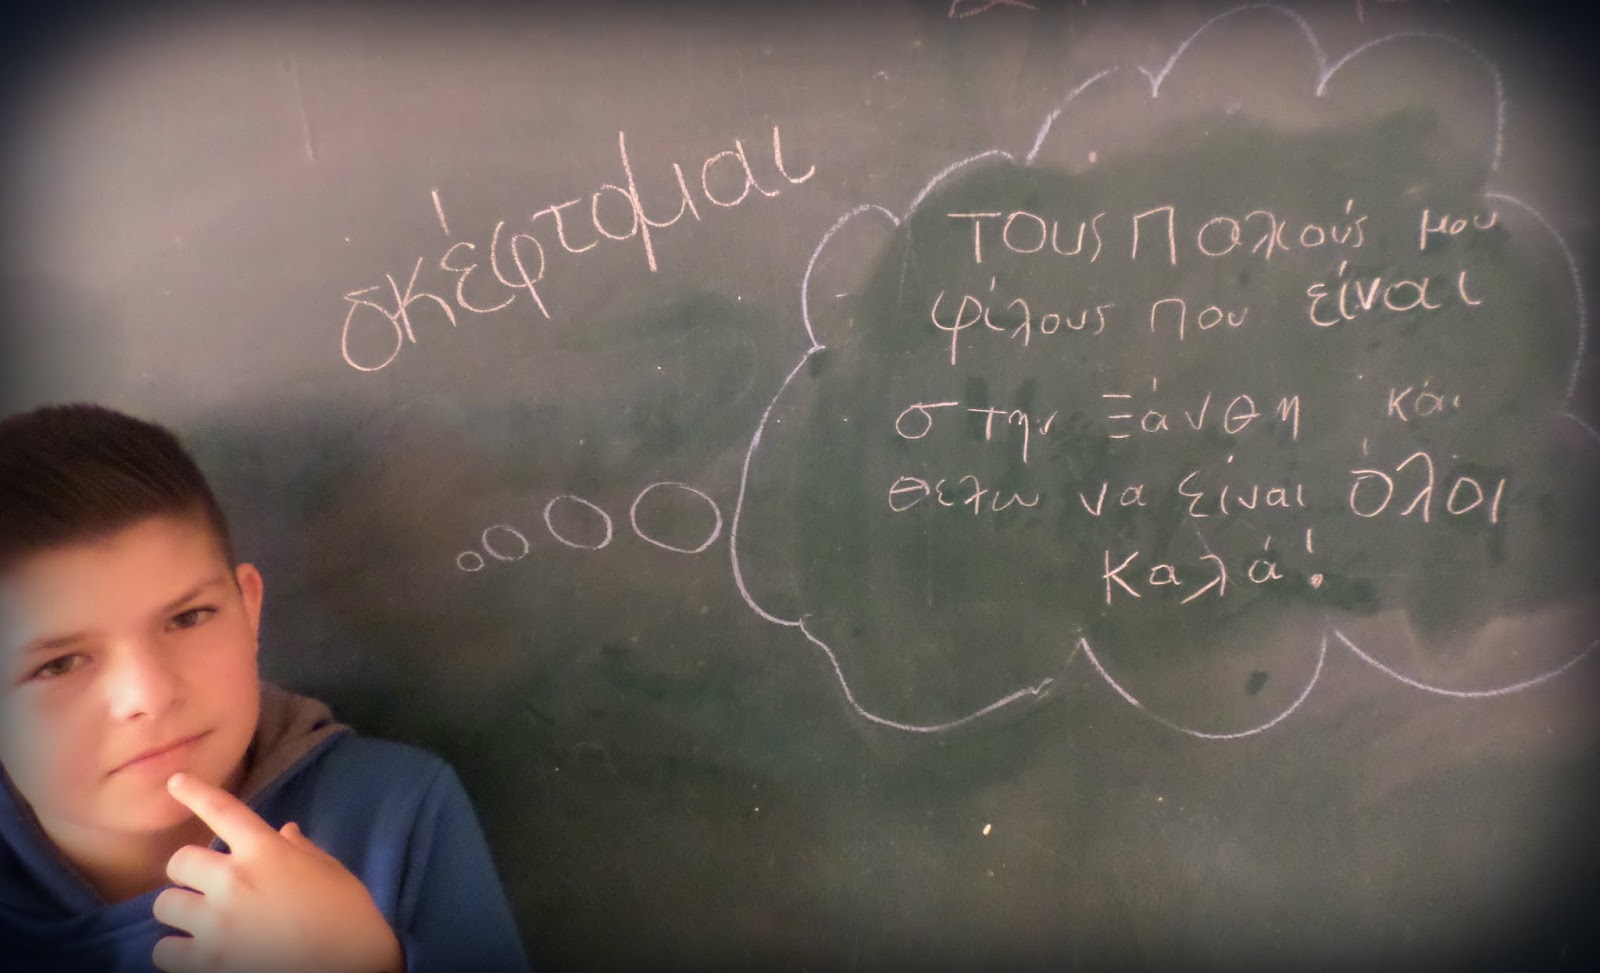 σκέφτομαι
τους παλιούς μου
φίλους που είναι
στην Ξάνθη και
θελω να είναι όλοι
καλά!